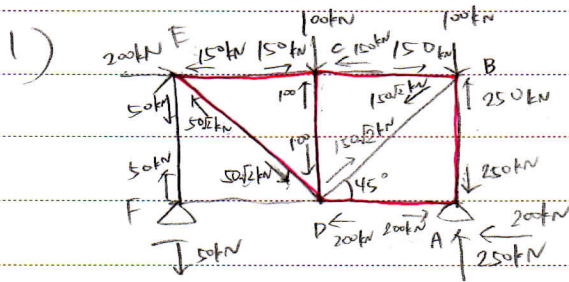 1)
100kN 100kN
200kN E 150kN 150kN C 150kN 150kN B
50kN 50√2kN 100 150√2kN 250kN
50kN 50√2kN 100 150√2kN 45° 250kN
F D 200kN 200kN A 200kN
50kN 250kN